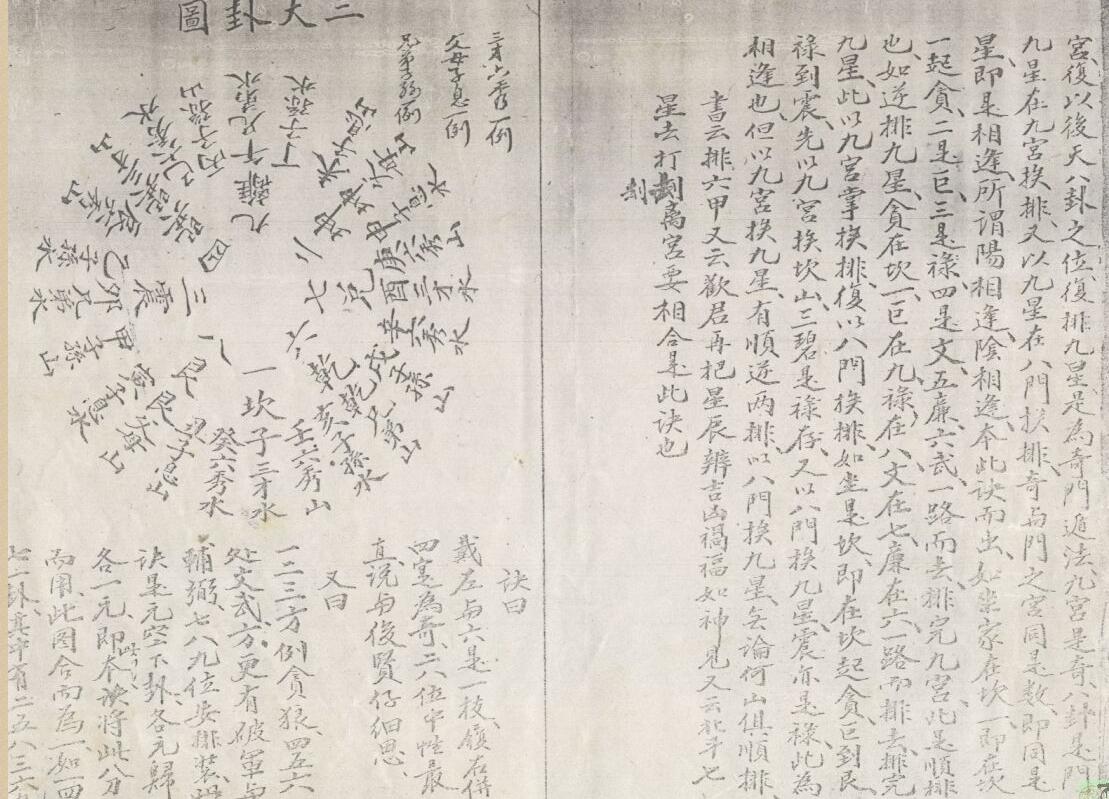 宮復以後天八卦之位復排九星是為奇門遁法九宮是奇八卦是門
九星在九宮挨排又以九星在八門挨排奇與門之宮同是數即同是
星即是相逢所謂陽相逢陰相逢本此诀而出如坐家在坎一即在坎
一起貪二是巨三是祿四是文五廉六武一路而去排完九宮此是順排
也如逆排九星貪在坎一巨在九祿在八文在七廉在六一路而排去排完
九星此以九宮掌挨排復以八門挨排如坐是坎即在坎起貪巨到艮
祿到震先以九宮挨坎山三碧是祿存又以八門挨九星震亦是祿此為
相逢也但以九宮挨九星有順逆兩排以八門挨九星無論何山俱順排
書云排六甲又云歡君再把星辰辨吉凶禍福如神見又云北斗七
星去打劃离宮要相合是此诀也
三大卦圖
三才六秀一例
父母子息一例
兄弟子孫例
九離
四巽
三震
八艮
一坎
六乾
七兌
午兄弟水
丁子孫水
丙子孫山
卯兄弟水
乙子孫水
甲子孫山
壬六秀山
子三才水
癸六秀水
亥子孫水
乾兄弟山
戌子孫山
辛六秀水
酉三才水
庚六秀山
诀曰
戴左與六是一枝領右併
四寔為奇二六位中性最
真说與後賢仔细思
又曰
一二三方例貪狼四五六
处文武方更有破軍與
輔弼七八九位安排裝
诀是元空下卦各元歸
各一元即本诀將此八分
而用此图合而為一如一四
七一卦其中有二五八三六